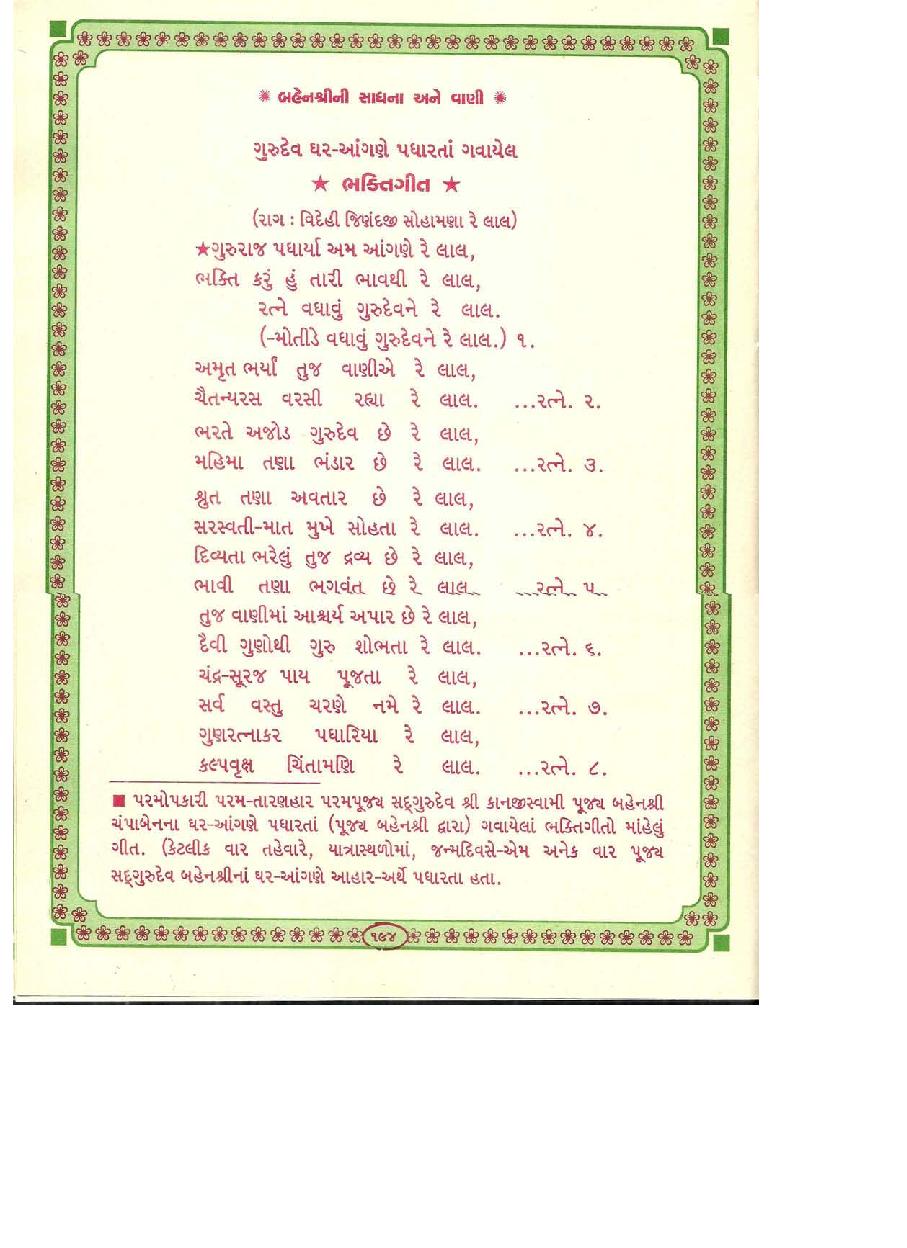 ✹ બહેનશ્રીની સાધના અને વાણી ✹
ગુરુદેવ ઘર-આંગણે પધારતાં ગવાયેલ
★ ભક્તિગીત ★
(રાગ : વિદેહી જિણંદજી સોહામણા રે લાલ)
★ગુરુરાજ પધાર્યા અમ આંગણે રે લાલ,
ભક્તિ કરું હું તારી ભાવથી રે લાલ,
રત્ને વધાવું ગુરુદેવને રે લાલ.
(-મોતીડે વધાવું ગુરુદેવને રે લાલ.) ૧.
અમૃત ભર્યાં તુજ વાણીએ રે લાલ,
ચૈતન્યરસ વરસી રહ્યા રે લાલ. ...રત્ને. ૨.
ભરતે અજોડ ગુરુદેવ છે રે લાલ,
મહિમા તણા ભંડાર છે રે લાલ. ...રત્ને. ૩.
શ્રુત તણા અવતાર છે રે લાલ,
સરસ્વતી-માત મુખે સોહતા રે લાલ. ...રત્ને. ૪.
દિવ્યતા ભરેલું તુજ દ્રવ્ય છે રે લાલ,
ભાવી તણા ભગવંત છે રે લાલ. ...રત્ને. ૫.
તુજ વાણીમાં આશ્ચર્ય અપાર છે રે લાલ,
દૈવી ગુણોથી ગુરુ શોભતા રે લાલ. ...રત્ને. ૬.
ચંદ્ર-સૂરજ પાય પૂજતા રે લાલ,
સર્વ વસ્તુ ચરણે નમે રે લાલ. ...રત્ને. ૭.
ગુણરત્નાકર પધારિયા રે લાલ,
કલ્પવૃક્ષ ચિંતામણિ રે લાલ. ...રત્ને. ૮.
■ પરમોપકારી પરમ-તારણહાર પરમપૂજ્ય સદ્ગુરુદેવ શ્રી કાનજીસ્વામી પૂજ્ય બહેનશ્રી
ચંપાબેનના ઘર-આંગણે પધારતાં (પૂજ્ય બહેનશ્રી દ્વારા) ગવાયેલાં ભક્તિગીતો માંહેલું
ગીત. (કેટલીક વાર તહેવારે, યાત્રાસ્થળોમાં, જન્મદિવસે-એમ અનેક વાર પૂજ્ય
સદ્ગુરુદેવ બહેનશ્રીનાં ઘર-આંગણે આહાર-અર્થે પધારતા હતા.
૧૯૪